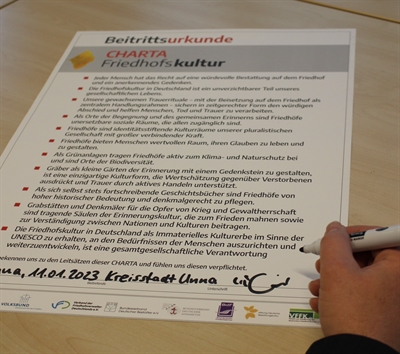 Beitrittsurkunde
CHARTA
Friedhofskultur
Jeder Mensch hat das Recht auf eine würdevolle Bestattung auf dem Friedhof
und ein anerkennendes Gedenken.
Die Friedhofskultur in Deutschland ist ein unverzichtbarer Teil unseres
gesellschaftlichen Lebens.
Unsere gewachsenen Trauerrituale - mit der Beisetzung auf dem Friedhof als
zentralen Handlungsrahmen - sichern in zeitgerechter Form den würdigen
Abschied und helfen Menschen, Tod und Trauer zu verarbeiten.
Als Orte der Begegnung und des gemeinsamen Erinnerns sind Friedhöfe
unersetzbare soziale Räume, die allen zugänglich sind.
Friedhöfe sind identitätsstiftende Kulturräume unserer pluralistischen
Gesellschaft mit großer verbindender Kraft.
Friedhöfe bieten Menschen wertvollen Raum, ihren Glauben zu leben und
zu gestalten.
Als Grünanlagen tragen Friedhöfe aktiv zum Klima- und Naturschutz bei
und sind Orte der Biodiversität.
Gräber als kleine Gärten der Erinnerung mit einem Gedenkstein zu gestalten,
ist eine einzigartige Kulturform, die Wertschätzung gegenüber Verstorbenen
ausdrückt und Trauer durch aktives Handeln unterstützt.
Als sich selbst stets fortschreibende Geschichtsbücher sind Friedhöfe von
hoher historischer Bedeutung und denkmalgerecht zu pflegen.
Grabstätten und Denkmäler für die Opfer von Krieg und Gewaltherrschaft
sind tragende Säulen der Erinnerungskultur, die zum Frieden mahnen sowie
zur Verständigung zwischen Nationen und Kulturen beitragen.
Die Friedhofskultur in Deutschland als Immaterielles Kulturerbe im Sinne der
UNESCO zu erhalten, an den Bedürfnissen der Menschen auszurichten und
weiterzuentwickeln, ist eine gesamtgesellschaftliche Verantwortung
bekennen uns zu den Leitsätzen dieser CHARTA und fühlen uns diesen verpflichtet.
nna, 11.01.2023 Kreisstadt Unna
VOLKSBUND